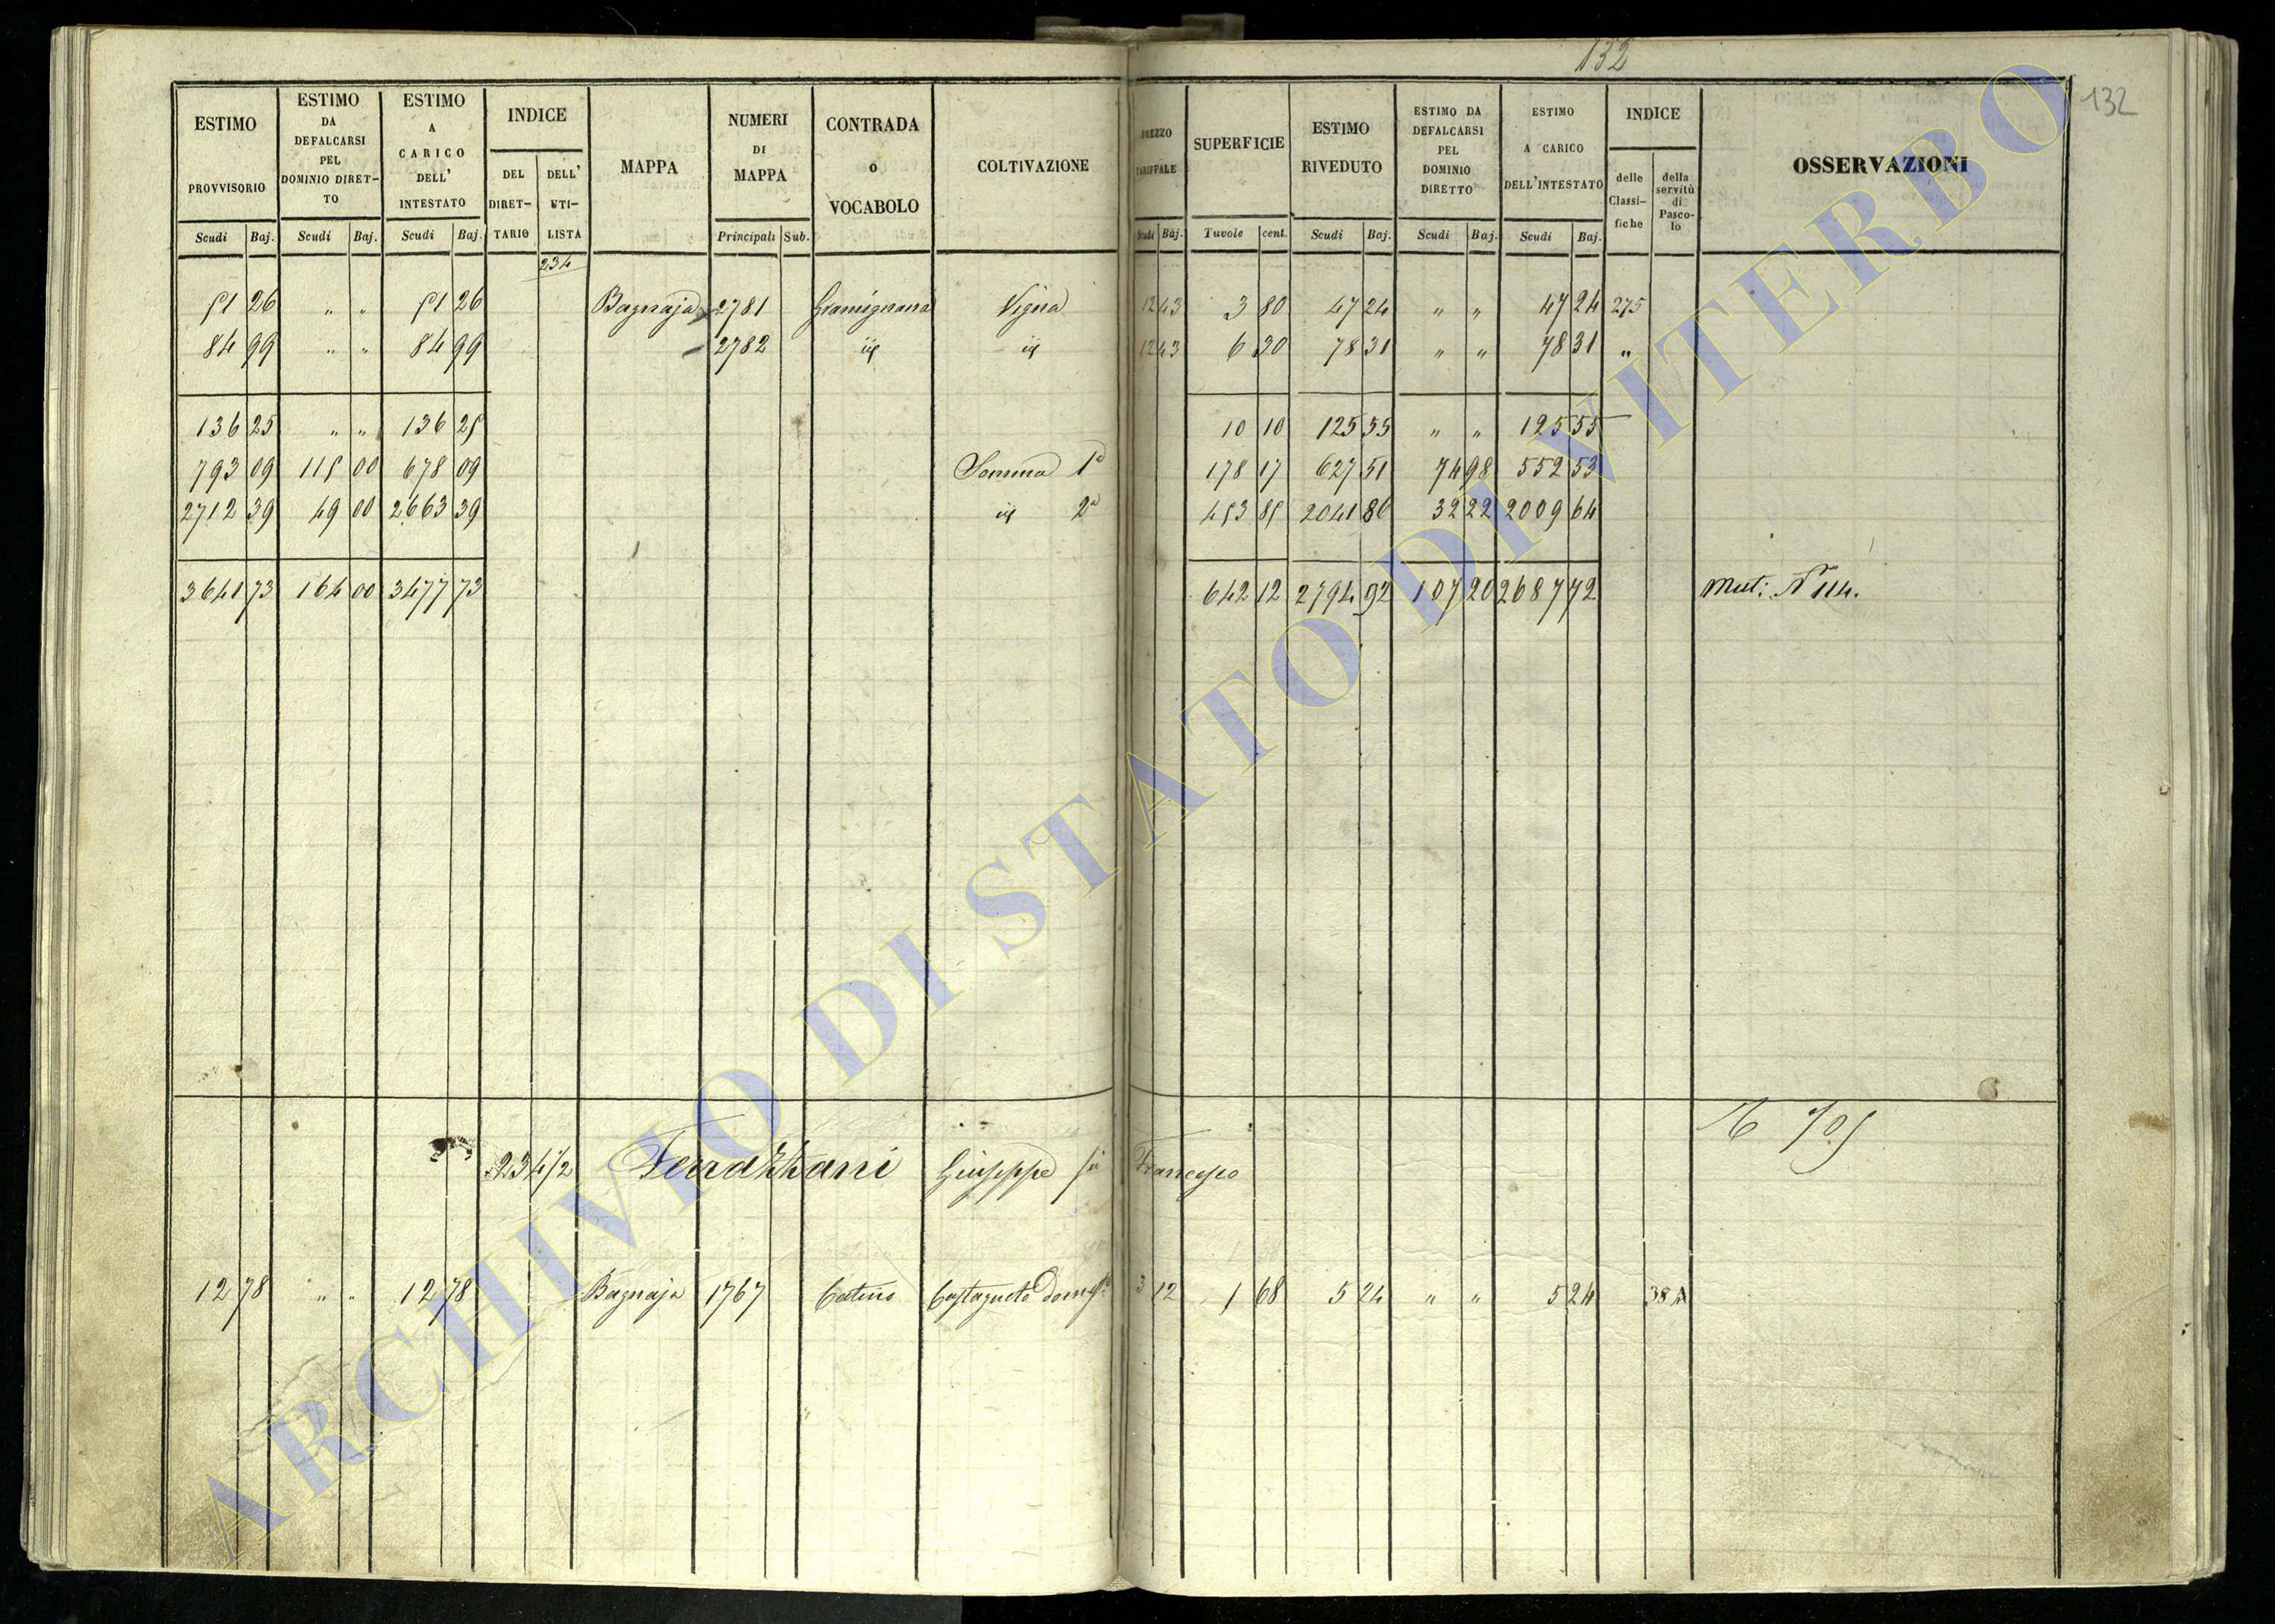 132
132
ESTIMO PROVVISORIO
ESTIMO DA DEFALCARSI PEL DOMINIO DIRET-TO
ESTIMO A CARICO DELL' INTESTATO
INDICE
DEL DIRET-TARIO
DELL' UTI-LISTA
MAPPA
NUMERI DI MAPPA
CONTRADA o VOCABOLO
COLTIVAZIONE
PREZZO TARIFFALE
SUPERFICIE
ESTIMO RIVEDUTO
ESTIMO DA DEFALCARSI PEL DOMINIO DIRETTO
ESTIMO A CARICO DELL'INTESTATO
INDICE
delle Classi-fiche
della servitù di Pasco-lo
OSSERVAZIONI
Scudi Baj. Scudi Baj. Scudi Baj. Principali Sub. Scudi Baj. Tavole cent. Scudi Baj. Scudi Baj. Scudi Baj.
234
51 26 " " 51 26 Bagnaja 2781 Gramignana Vigna 12 43 3 80 47 24 " " 47 24 275
84 99 " " 84 99 2782 id id 12 43 6 30 78 31 " " 78 31 "
136 25 " " 136 25 10 10 125 55 " " 125 55
793 09 115 00 678 09 Somma 1a 178 17 627 51 74 98 552 53
2712 39 49 00 2663 39 id 2a 453 85 2041 86 32 22 2009 64
3641 73 164 00 3477 73 642 12 2794 92 107 20 2687 72 Mut: N 114.
705
234 1/2 Giuseppe fu Francesco
12 78 " " 12 78 Bagnaja 1767 Catino Castagneto domo 3 12 1 68 5 24 " " 5 24 38 A
ARCHIVIO DI STATO DI VITERBO